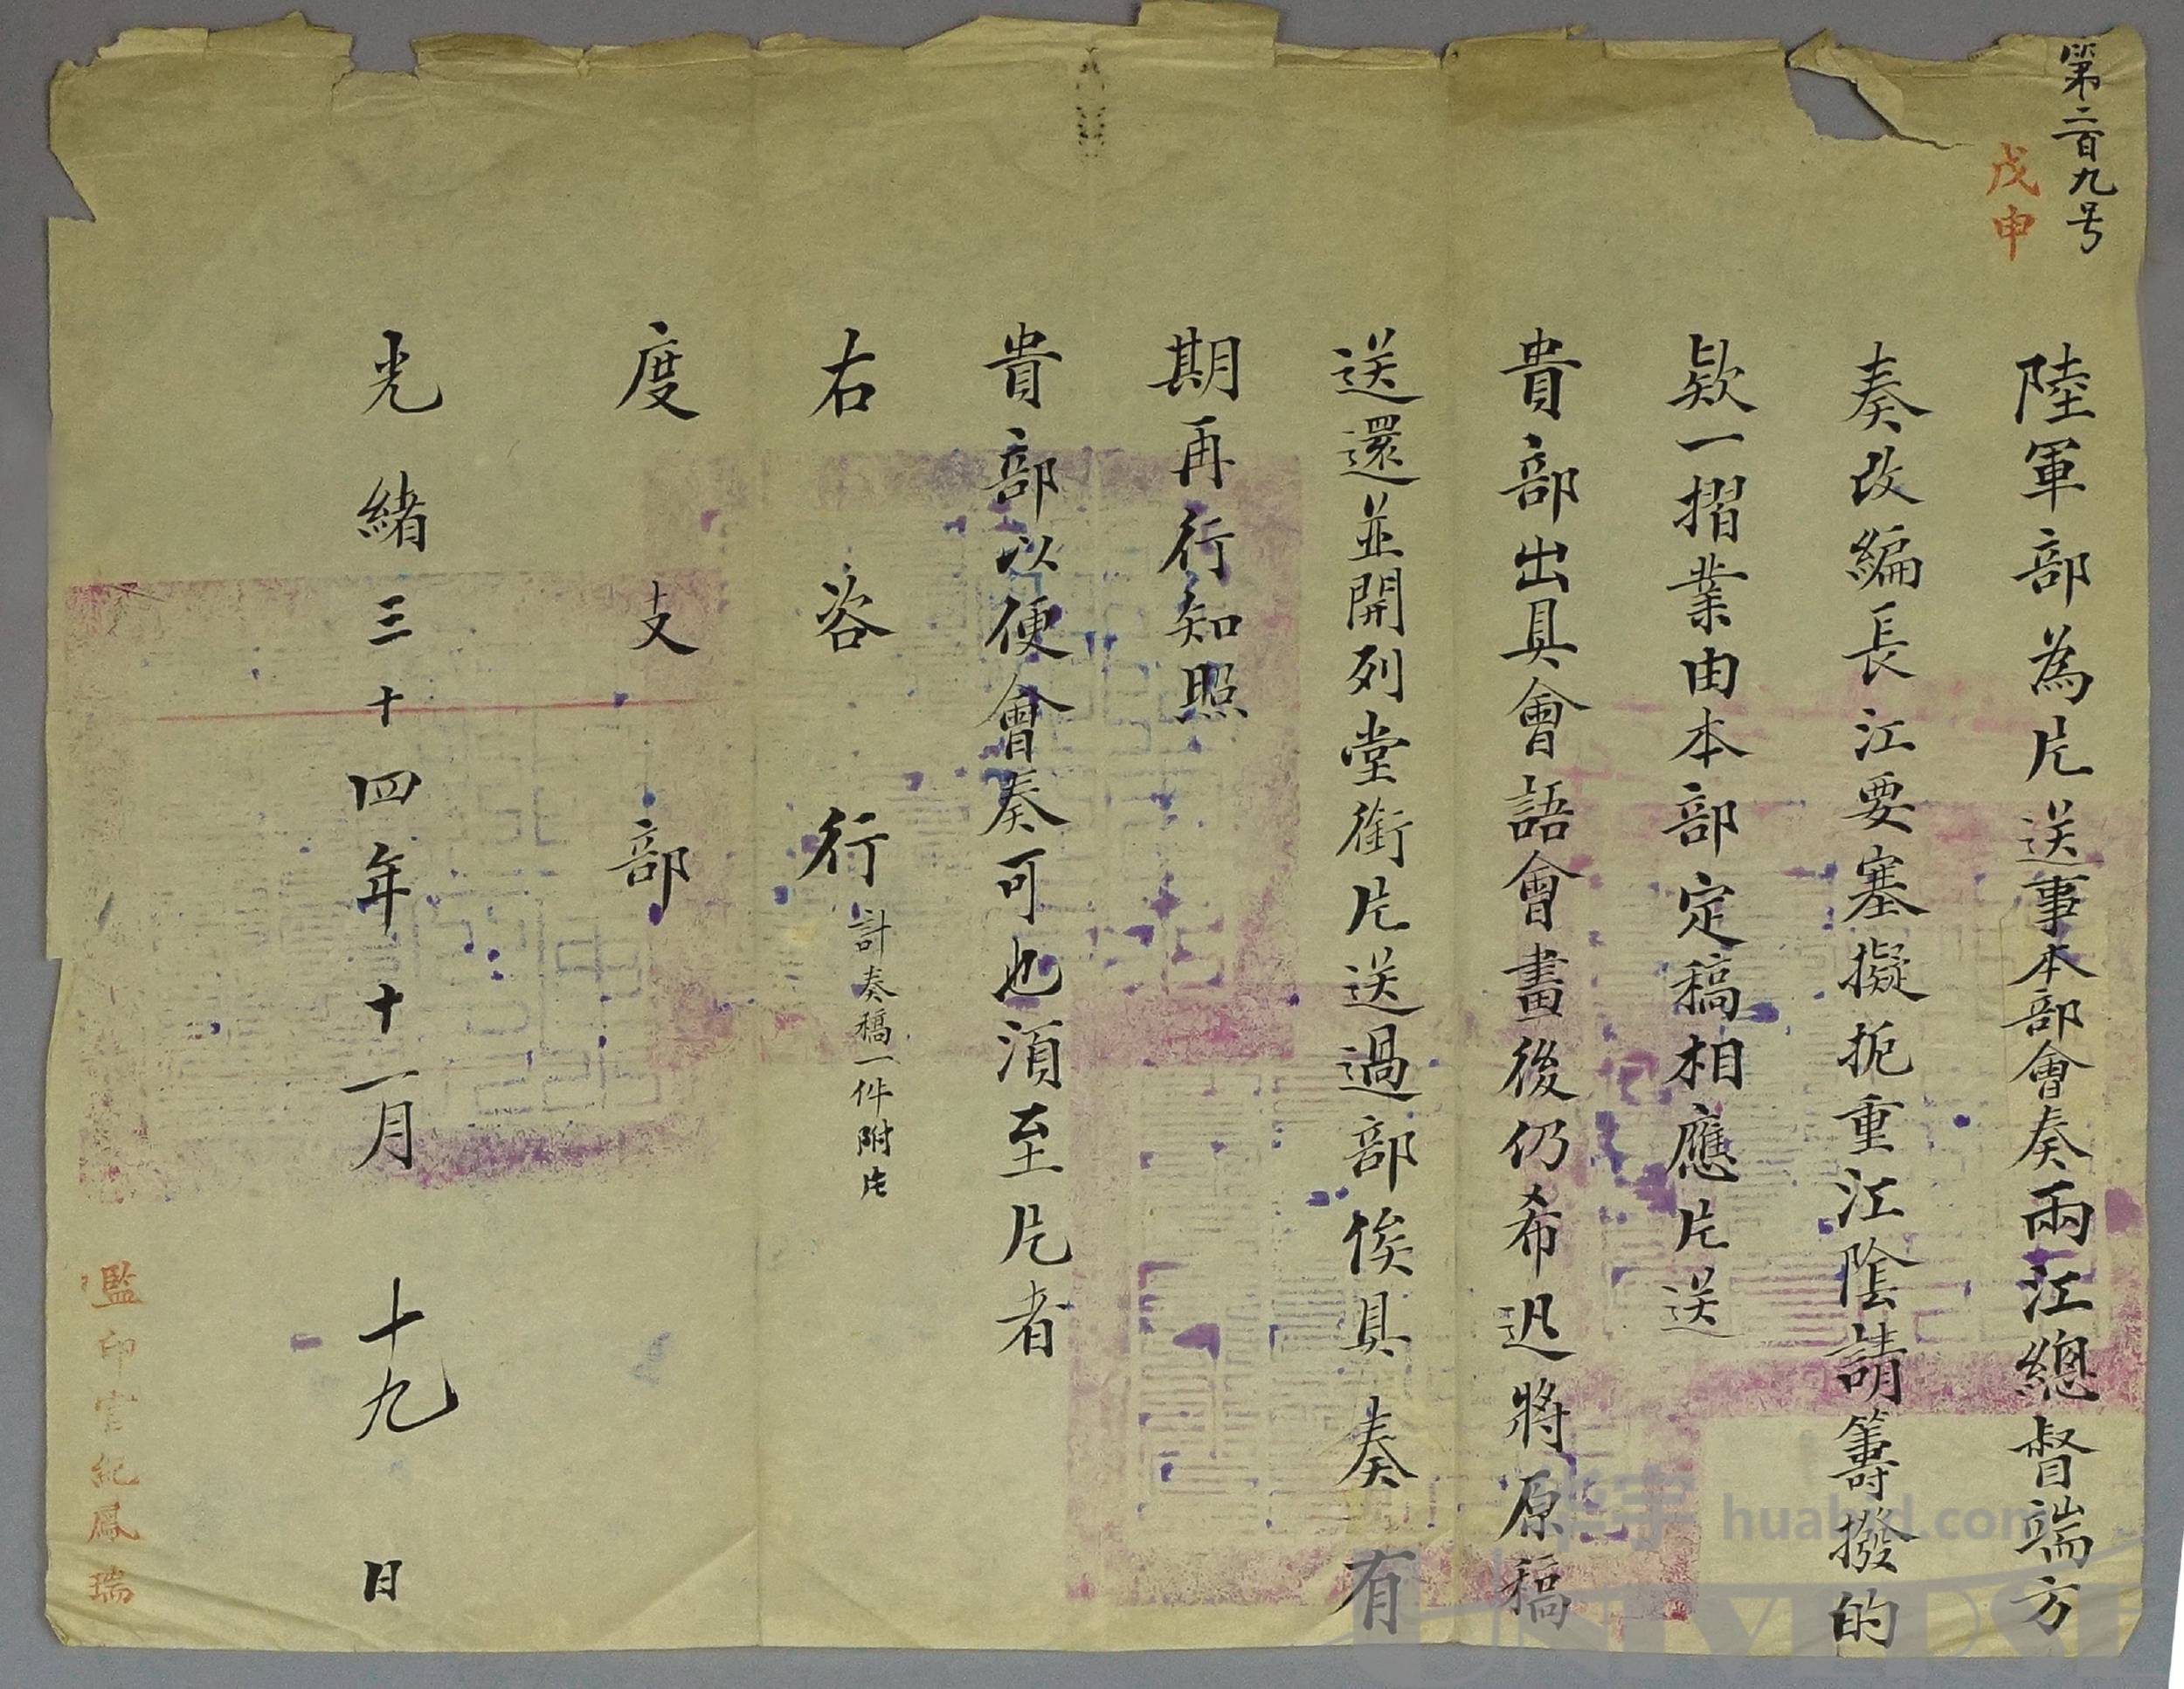 第二百九号
戊申
陸軍部為片送事本部會奏兩江總督端方
奏改編長江要塞擬扼重江陰請籌撥的
欵一摺業由本部定稿相應片送
貴部出具會語會畫後仍希迅將原稿
送還並開列堂銜片送過部俟具奏有
期再行知照
貴部以便會奏可也須至片者
右咨行計奏稿一件附片
度支部
光緒三十四年十一月十九日
監印官紀鳳瑞
华宇 huabid.com
UNIVERSE